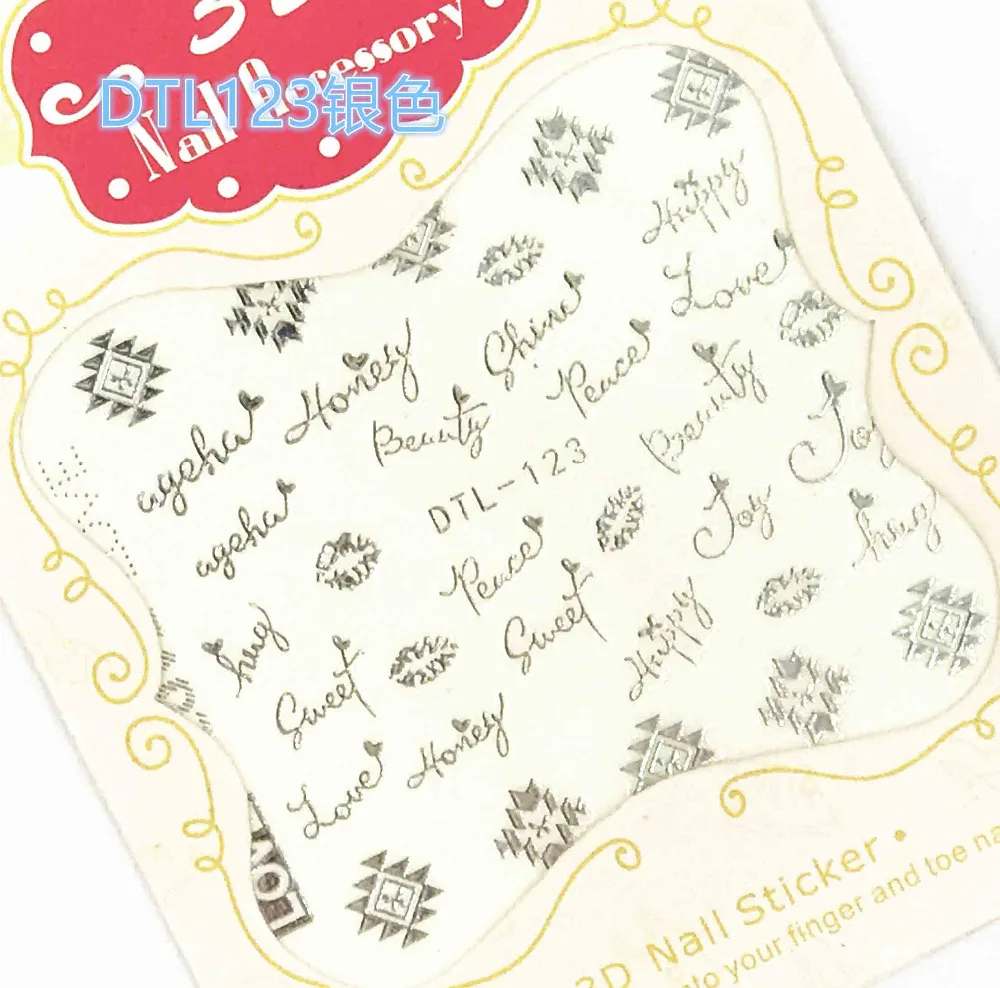 3D
Nail Accessory
DTL123银色
Happy
Love
Shine
Honey
Peace
ageha
Beauty
Beauty
Joy
DTL-123
ageha
Joy
hug
Peace
Sweet
hug
Happy
Sweet
Honey
Love
LOVE
3D Nail Sticker
to your finger and toe na